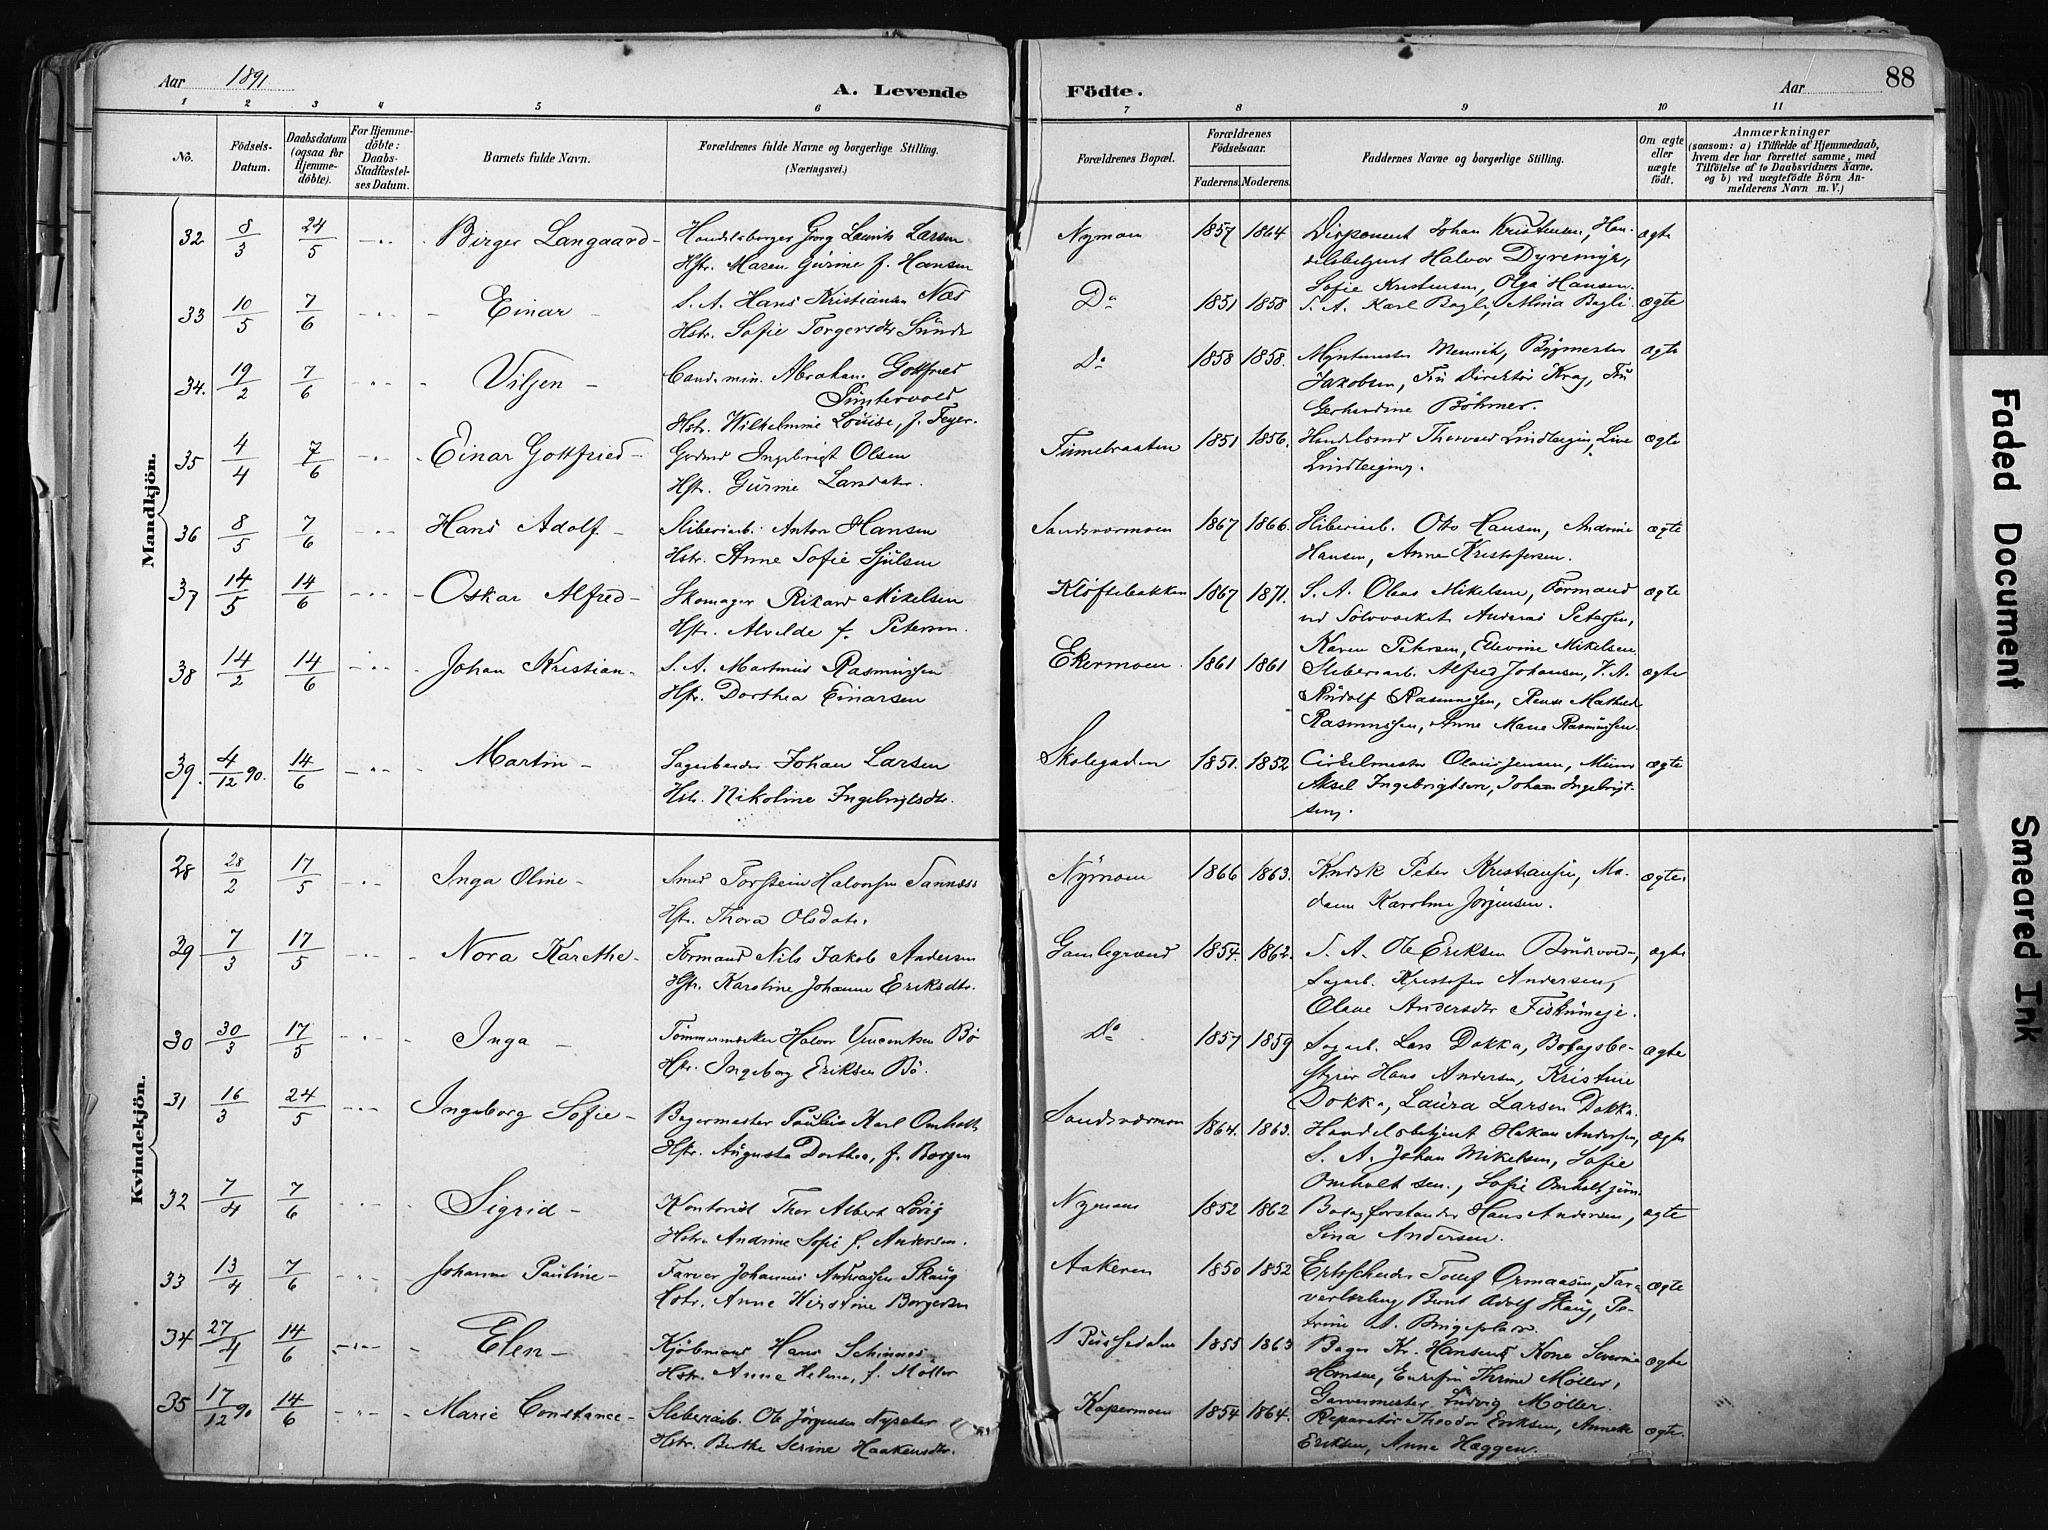 Aar 1891
A. Levende
Födte.
Aar
88
1 2 3 4 5 6 7 8 9 10 11
No.
Födsels-Datum.
Daabsdatum (ogsaa for Hjemme-döbte).
For Hjemme-döbte: Daabs-Stadfæstel-ses Datum.
Barnets fulde Navn.
Forældrenes fulde Navne og borgerlige Stilling. (Næringsvei.)
Forældrenes Bopæl.
Forældrenes Födselsaar.
Faderens. Moderens.
Faddernes Navne og borgerlige Stilling.
Om ægte eller uægte födt.
Anmærkninger
(saasom: a) i Tilfælde af Hjemmedaab,
hvem der har forrettet samme, med
Tilföielse af to Daabsvidners Navne,
og b) ved uægtefödte Börn An-
melderens Navn m. V.)
Mandkjön.
32 8/3 24/5 Birger Langaard Handelsborger Georg Laurits Larsen
Hstr. Maren Gurine f. Hansen
Nymoen 1857 1864 Disponent Johan Kristensen, Han-
delsbetjent Halvor Dyremyr,
Sofie Kristensen, Olga Hansen. ægte
33 10/5 7/6 Einar S. A. Hans Kristiansen Næs
Hstr. Sofie Torgersdtr Sunde
Do 1851 1858 S. A. Karl Bagli, Mina Bagli ægte
34. 19/2 7/6 Viljen Cand. min. Abraham Gottfried
Hstr. Wilhelmine Louise, f. Feyer.
Do 1858 1858. Myntmester Bygmester
Jakobsen, Fru Direktør Krag, Fru
Gerhardine Böhmer. ægte
35 4/4 7/6 Einar Gottfried Ingebrigt Olsen
Hstr. Gurine
1851 1856. Handelsmd Thorvald
ægte
36 8/5 7/6 Hans Adolf Sliberiarb. Anton Hansen
Hstr. Anne Sofie Sjulsen
Sandsværmoen 1867 1866. Sliberiarb. Otto Hansen, Andrine
Hansen, Anne Kristofersen. ægte
37 14/5 14/6 Oskar Alfred Skomager Rikard Mikelsen
Hstr. Alvilde f. Petersen.
Kløftebakken 1867 1871. S. A. Olaus Mikelsen, Formand
ved Sølvværket Andreas Petersen,
Karen Petersen, Ellevine Mikelsen. ægte
38 14/2 14/6 Johan Kristian S. A. Martinius Rasmussen
Hstr. Dorthea Einarsen
Ekermoen. 1861 1861 Sliberiarb. Alfred Johansen, S. A.
Rudolf Rasmussen, Mathilde
Rasmussen, Anne Marie Rasmussen. ægte
39. 4/12 90. 14/6 Martin Sagarbeider Johan Larsen
Hstr. Nikoline Ingebrigtsdtr.
Skolegaden 1851. 1852 Cirkelmester Olaus Jensen,
Aksel Ingebrigtsen, Johan Ingebrigt-
sen. ægte
Kvindekjön.
28 28/2 17/5 Inga Oline Smed Torstein Halvorsen
Hstr. Thora Olsdatr.
Nymoen 1866 1863. Kudsk Peter Kristiansen, Ma-
dame Karoline Jörgensen. ægte
29 7/3 17/5 Nora Karethe Formand Nils Jakob Andersen
Hstr. Karoline Johanne Eriksdtr.
Gamlegrænd 1854. 1862. S. A. Ole Eriksen
Sagarb. Kristofer Andersen,
Olave Andersdtr ægte
30 30/3 17/5 Inga Tömmermærker Halvor Vincentsen Bö
Hstr. Ingeborg Eriksen Bö.
Do 1857 1859 Sagarb. Lars Dokka, Bolagsbe-
styrer Hans Andersen, Kristine
Dokka, Laura Larsen Dokka. ægte
31 16/3 24/5 Ingeborg Sofie Bagermester Paulus Karl Omholt
Hstr. Augusta Dorthea, f. Borgen
Sandsværmoen 1864. 1863. Handelsbetjent Hakon Andersen,
S. A. Johan Mikelsen, Sofie
Omholt sen., Sofie Omholt jun. ægte
32 7/4 7/6 Sigrid Kontorist Thor Albert
Hstr. Andrine Sofie f. Andersen.
Nymoen 1852 1862 Bolagsforstander Hans Andersen,
Sina Andersen. ægte
33 13/4 7/6 Johanne Pauline Farver Johannes Andreassen Skaug
Hstr. Anne Kirstine Borgersen
Aakeren 1850 1852 Ertsscheider Tollef Ormaasen, Far-
verlærling Bernt Adolf Skaug, Pe-
trine A. ægte
34 27/4 14/6 Elen Kjöbmand Hans Schinnes
Hstr. Anne Helene, f. Möller
1855 1863 Bager Kr. Hansen, Kone Severine
Hansen, Thrine Möller,
Garvermester Ludvig Möller. ægte
35 17/12 90 14/6 Marie Constance Sliberiarb. Ole Jörgensen
Hstr. Berthe Serine Haakensdtr.
Kapermoen 1854 1864. Reparatör Theodor Eriksen, Anneke
Eriksen, Anne Hæggen. ægte.
Faded Document
Smeared Ink